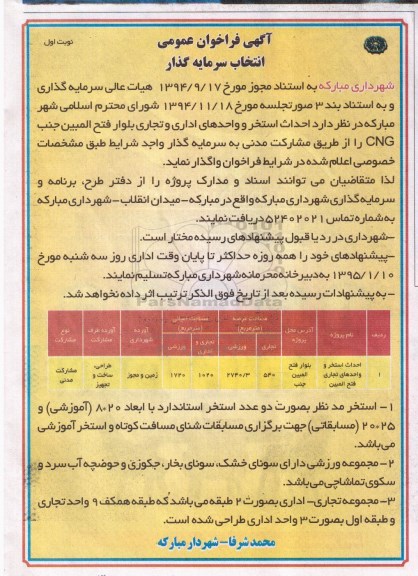 نوبت اول
آگهی فراخوان عمومی
انتخاب سرمایه گذار
شهرداری مبارکه به استناد مجوز مورخ ۱۳۹۴/۹/۱۷ هیات عالی سرمایه گذاری
و به استناد بند ۳ صورتجلسه مورخ ۱۳۹۴/۱۱/۱۸ شورای محترم اسلامی شهر
مبارکه در نظر دارد احداث استخر و واحدهای اداری و تجاری بلوار فتح المبین جنب
CNG را از طریق مشارکت مدنی به سرمایه گذار واجد شرایط طبق مشخصات
خصوصی اعلام شده در شرایط فراخوان واگذار نماید.
لذا متقاضیان می توانند اسناد و مدارک پروژه را از دفتر طرح، برنامه و
سرمایه گذاری شهرداری مبارکه واقع در مبارکه - میدان انقلاب - شهرداری مبارکه
به شماره تماس ۵۲۴۰۲۰۲۱ دریافت نمایند.
-شهرداری در رد یا قبول پیشنهادهای رسیده مختار است.
-پیشنهادهای خود را همه روزه حداکثر تا پایان وقت اداری روز سه شنبه مورخ
۱۳۹۵/۱/۱۰ به دبیرخانه محرمانه شهرداری مبارکه تسلیم نمایند.
- به پیشنهادات رسیده بعد از تاریخ فوق الذکر ترتیب اثر داده نخواهد شد.
ParsNamadData
ردیف نام پروژه آدرس محل پروژه مساحت عرصه (مترمربع) تجاری ورزشی مساحت اعیانی (مترمربع) تجاری و اداری ورزشی آورده شهرداری آورده طرف مشارکت نوع مشارکت
۱ احداث استخر و واحدهای تجاری فتح المبین بلوار فتح المبین جنب ۵۴۰ ۲۷۴۰/۳ ۱۰۲۰ ۱۷۲۰ زمین و مجوز طراحی، ساخت و تجهیز مشارکت مدنی
۱- استخر مد نظر بصورت دو عدد استخر استاندارد با ابعاد ۸*۲۰ (آموزشی) و
۲۵*۲۰ (مسابقاتی) جهت برگزاری مسابقات شنای مسافت کوتاه و استخر آموزشی
می باشد.
۲- مجموعه ورزشی دارای سونای خشک، سونای بخار، جکوزی و حوضچه آب سرد و
سکوی تماشاچی می باشد.
۳- مجموعه تجاری- اداری بصورت ۲ طبقه می باشد که طبقه همکف ۹ واحد تجاری
و طبقه اول بصورت ۳ واحد اداری طراحی شده است.
محمد شرفا - شهردار مبارکه